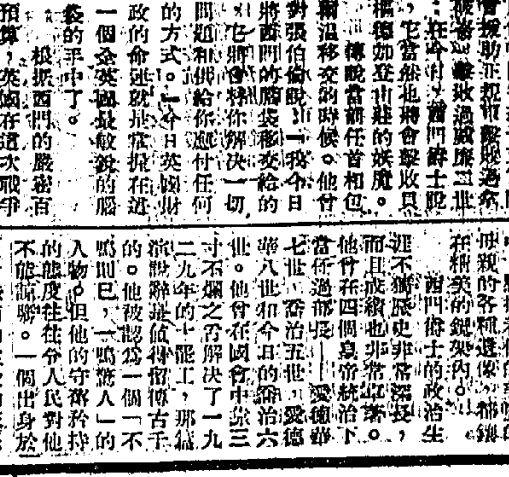 會援助正規軍擊敗過拿
破崙，擊敗過威廉二世
；在今，西門爵士說
，它當然也將會擊敗貝
德如登山莊的妖魔。
傳說當前任首相包
爾溫移交的時候。他曾
對張伯倫說：「我今日
將西門的腦袋移交給你
。它將會替你解決一切
問題和供給你應付任何
的方式。」今日英國財
政的命運就是掌握在這
一個全英國最敏銳的腦
袋的手中了。
根据西門的嚴密百
預算，英國在這次戰爭
母親的各種遺像，鑲
在精美的銀架內。
西門爵士的政治生
涯不獨歷史非常深長，
而且成績也非常卓著。
他曾在四個皇帝統治下
當任過部長——愛德華
七世，喬治五世，愛德
華八世和今日的喬治六
世。他曾在國會中憑三
寸不爛之舌解決了一九
二九年的大罷工，那篇
演說辭是值得留傳古于
的。他被認爲一個「不
鳴則已，一鳴驚人」的
人物。但他的守矜持
的態度往往令人民對他
不能諒解。一個出身於